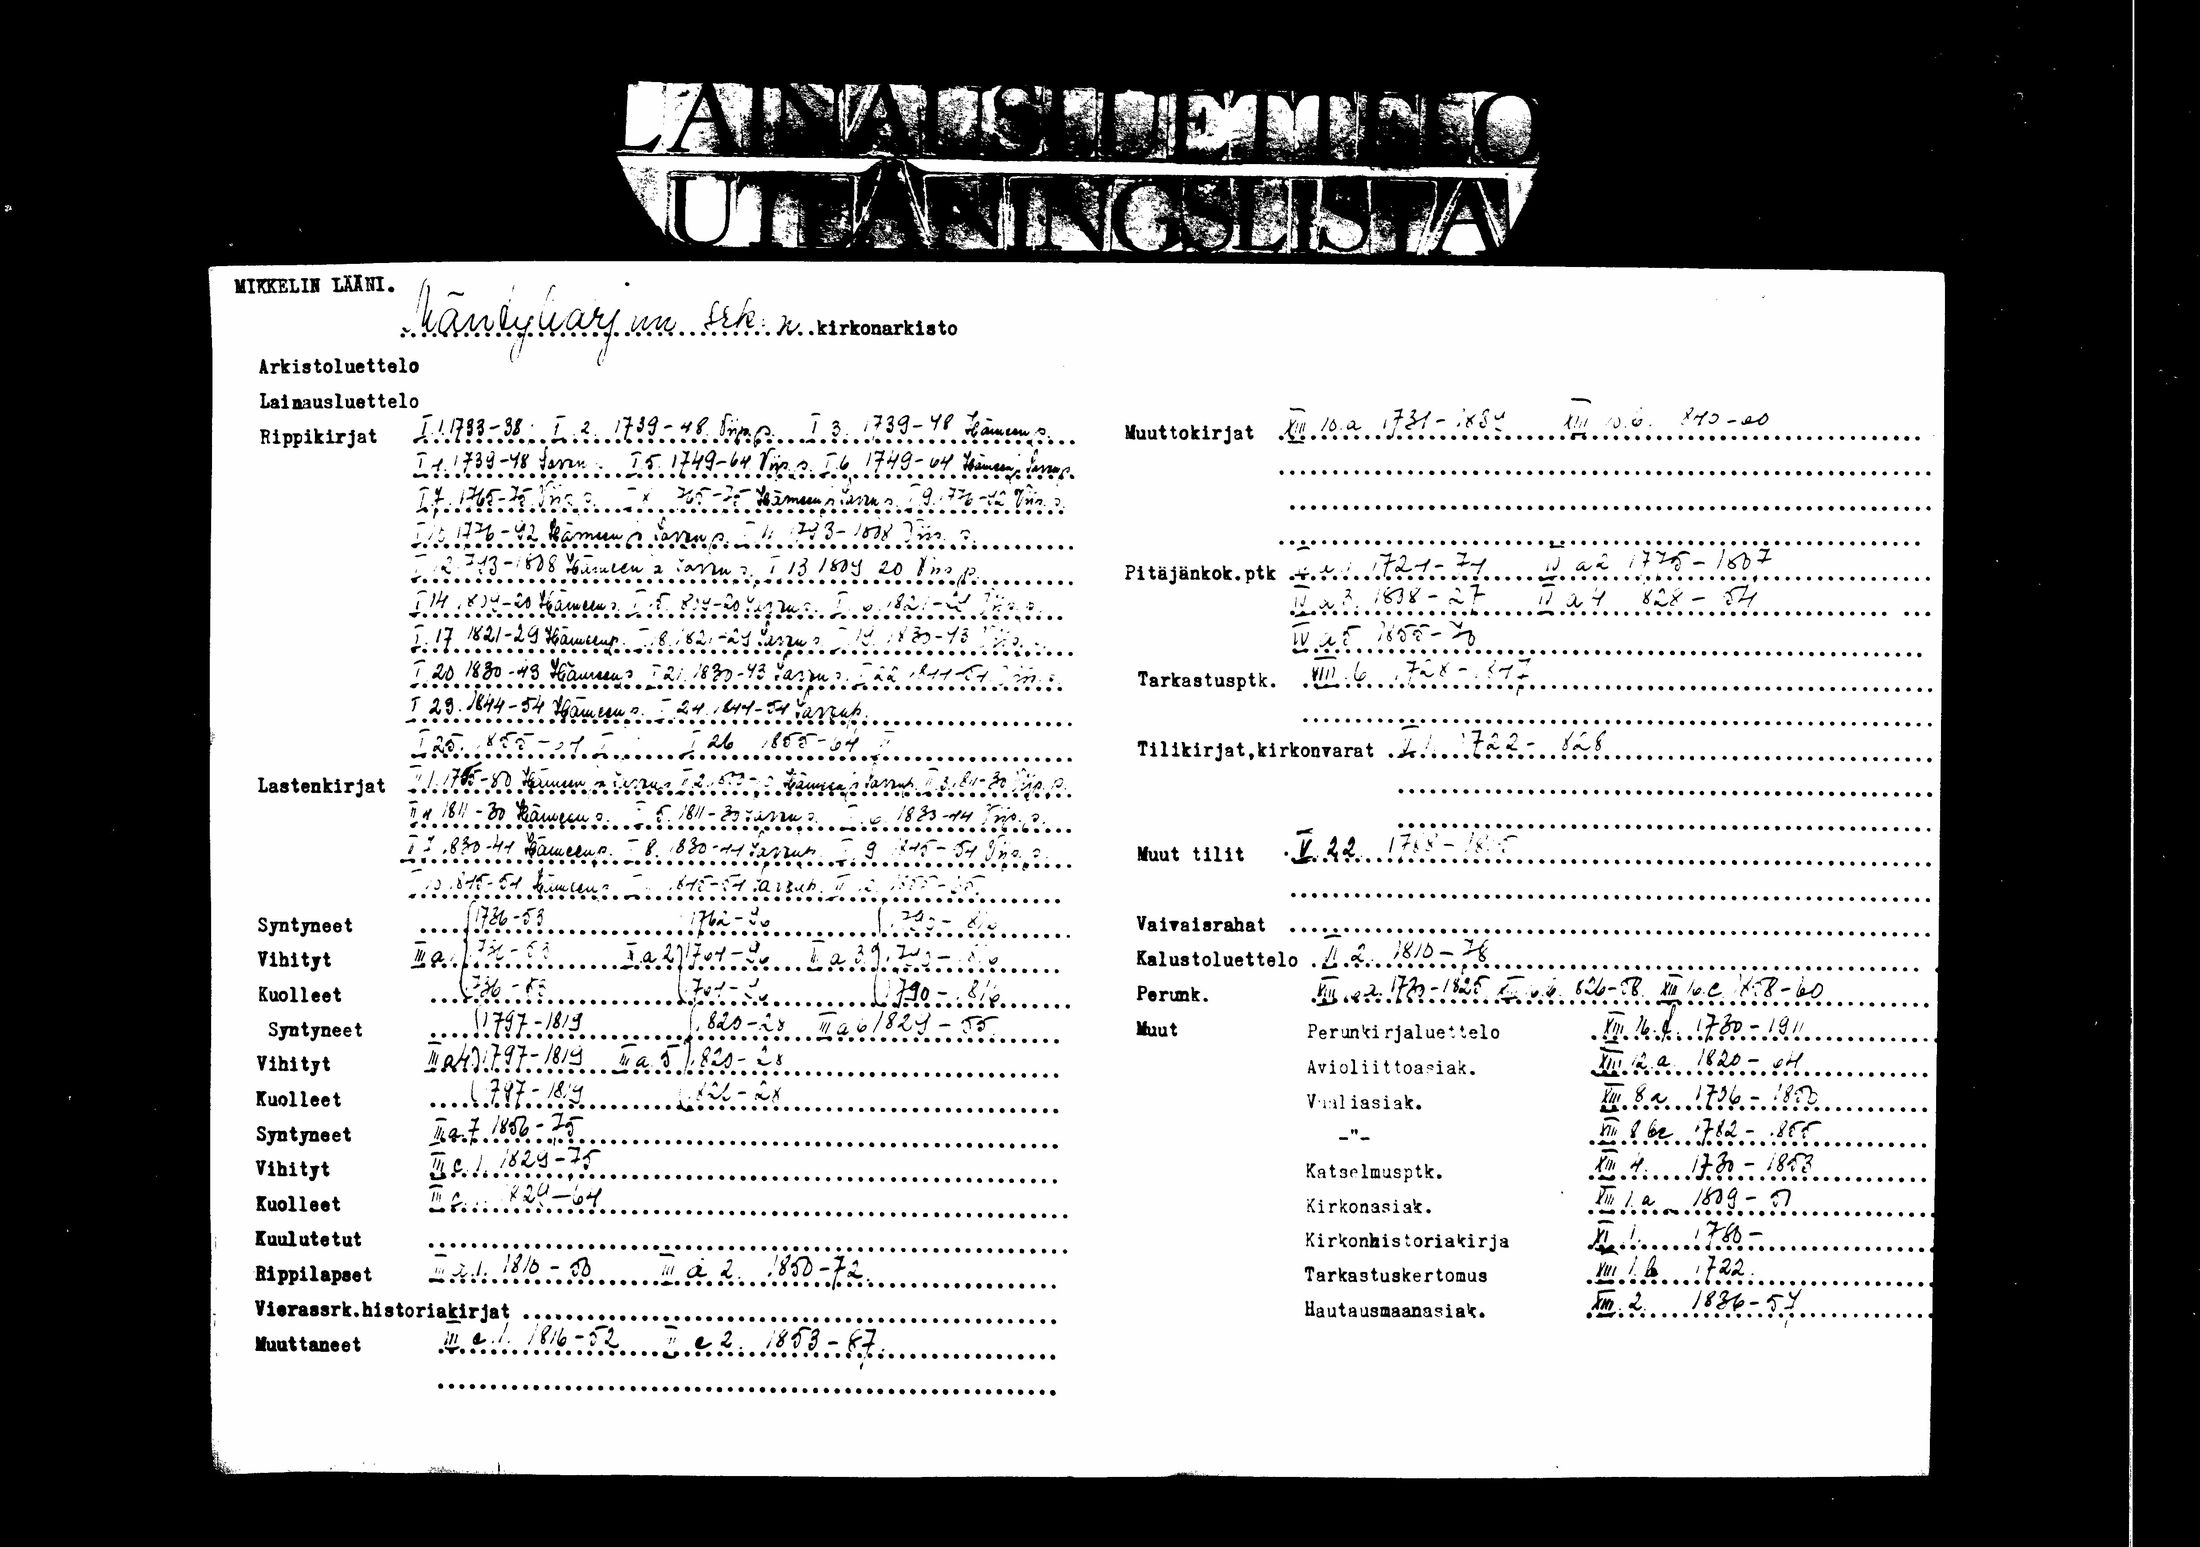 LAINAUSLUETTELO
UTLÅNINGSLISTA
MIKKELIN LÄÄNI.
Mäntyharjun srk:n kirkonarkisto
Arkistoluettelo
Lainausluettelo
Rippikirjat I.1.1733-38. I.2. 1739-48. Viip.p. I 3. 1739-48 Hämeen p.
I 4. 1739-48 Savon I 5. 1749-64 Viip.p. I 6. 1749-64 Hämeen, Savon p.
I 7. 1765-75 Viip.p. I 8. 1765-75 Hämeen p. Savon p. I 9. 1776-92 Viip.p.
I 10. 1776-92 Hämeen p. Savon p. I 11. 1793-1808 Viip.p.
I 12. 1793-1808 Hämeen p. Savon p. I 13 1809 20 Viip.p.
I 14. 1809-20 Hämeen p. I 15. 1809-20 Savon p. I 16. 1821-29 Viip.p.
I. 17 1821-29 Hämeen p. I 18. 1821-29 Savon p. I 19. 1830-43 Viip.p.
I 20 1830-43 Hämeen p. I 21. 1830-43 Savon p. I 22 1844-54 Viip.p.
I 23. 1844-54 Hämeen p. I 24. 1844-54 Savon p.
I 25. 1855-64 I I 26 1855-64 II
Lastenkirjat II 1. Hämeen p. Savon p. II 2. Hämeen p. Savon p. II 3. 1811-30 Viip.p.
II 4 1811-30 Hämeen p. II 5. 1811-30 Savon p. II 6. 1830-44 Viip.p.
II 7. 1830-44 Hämeen p. II 8. 1830-44 Savon p. II 9 1845-54 Viip.p.
II 10. 1845-54 Hämeen p. II 11. 1845-54 Savon p. II 12. 1855-65.
Syntyneet 1736-53 1762-90 1790-1816
Vihityt III a 1 1736-53 III a 2 1761-90 III a 3 1790-1816
Kuolleet 1736-53 1761-90 1790-1816
Syntyneet 1797-1819 1820-28 III a 6 1829-55.
Vihityt III a 4 1797-1819 III a 5 1820-28
Kuolleet 1797-1819 1821-28
Syntyneet III a.7. 1856-75
Vihityt III c.1. 1829-75
Kuolleet 1829-64
Kuulutetut
Rippilapset 1810-50 2. 1850-72.
Vierassrk.historiakirjat
Muuttaneet III e.1. 1816-52 III e 2. 1853-87.
Muuttokirjat XIII 10.a 1731-1839 XIII 10.b. 1840-60
Pitäjänkok.ptk IV a 1. 1724-74 IV a 2 1775-1807
IV a 3. 1808-27 IV a 4 1828-54
IV a 5 1855-70
Tarkastusptk. VIII.6. 1728-1847
Tilikirjat,kirkonvarat V.1. 1722-1828
Muut tilit V.22. 1788-18
Vaivaisrahat
Kalustoluettelo 2. 1810-78
Perunk. XIII 16.a. 1730-1825 XIII 16.b. 1826-58. XIII 16.c. 1858-60
Muut Perunkirjaluettelo XIII 16. 1730-1911
Avioliittoasiak. XIII 12.a. 1820-64
Vaaliasiak. XIII 8 a 1736-1850
-"- XIII 8 bc 1782-1855
Katselmusptk. XIII 4. 1730-1853
Kirkonasiak. XIII 1.a 1809-51
Kirkonhistoriakirja XI 1. 1780-
Tarkastuskertomus VIII 1.b 1722.
Hautausmaanasiak. XIII.2. 1836-57